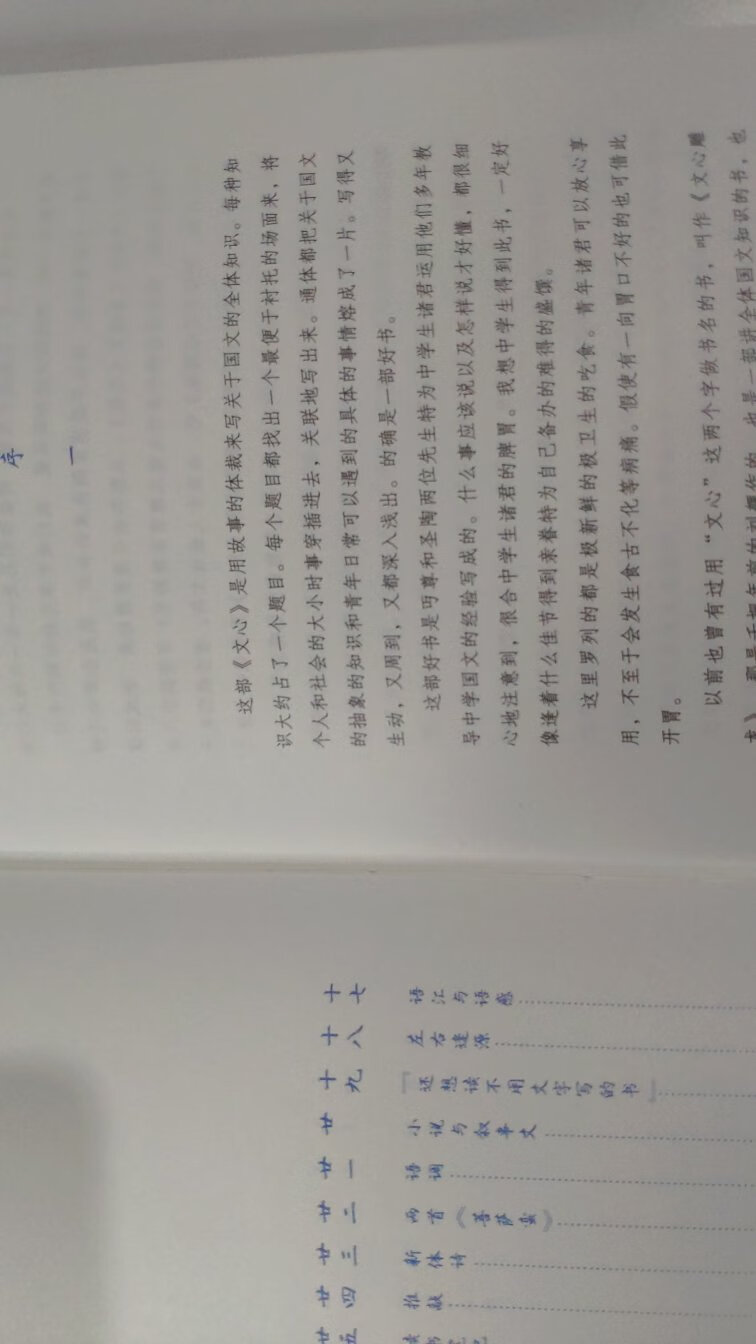 序
一
这部《文心》是用故事的体裁来写关于国文的全体知识。每种知
识大约占了一个题目。每个题目都找出一个最便于衬托的场面来，将
个人和社会的大小时事穿插进去，关联地写出来。通体都把关于国文
的抽象的知识和青年日常可以遇到的具体的事情熔成了一片。写得又
生动，又周到，又都深入浅出。的确是一部好书。
这部好书是丏尊和圣陶两位先生特为中学生诸君运用他们多年教
导中学国文的经验写成的。什么事应该说以及怎样说才好懂，都很细
心地注意到，很合中学生诸君的脾胃。我想中学生得到此书，一定好
像逢着什么佳节得到亲眷特为自己备办的难得的盛馔。
这里罗列的都是极新鲜的极卫生的吃食。青年诸君可以放心享
用，不至于会发生食古不化等病痛。假使有一向胃口不好的也可借此
开胃。
以前也曾有过用“文心”这两个字做书名的书，叫作《文心雕
龙》，那是千把年前的刘勰作的，也是一部讲全体国文知识的书，也
十七 语汇与语感
十八 左右逢源
十九 『还想读不用文字写的书』
廿 小说与叙事文
廿一 语调
廿二 两首《菩萨蛮》
廿三 新体诗
廿四 推敲
廿五 读书笔记